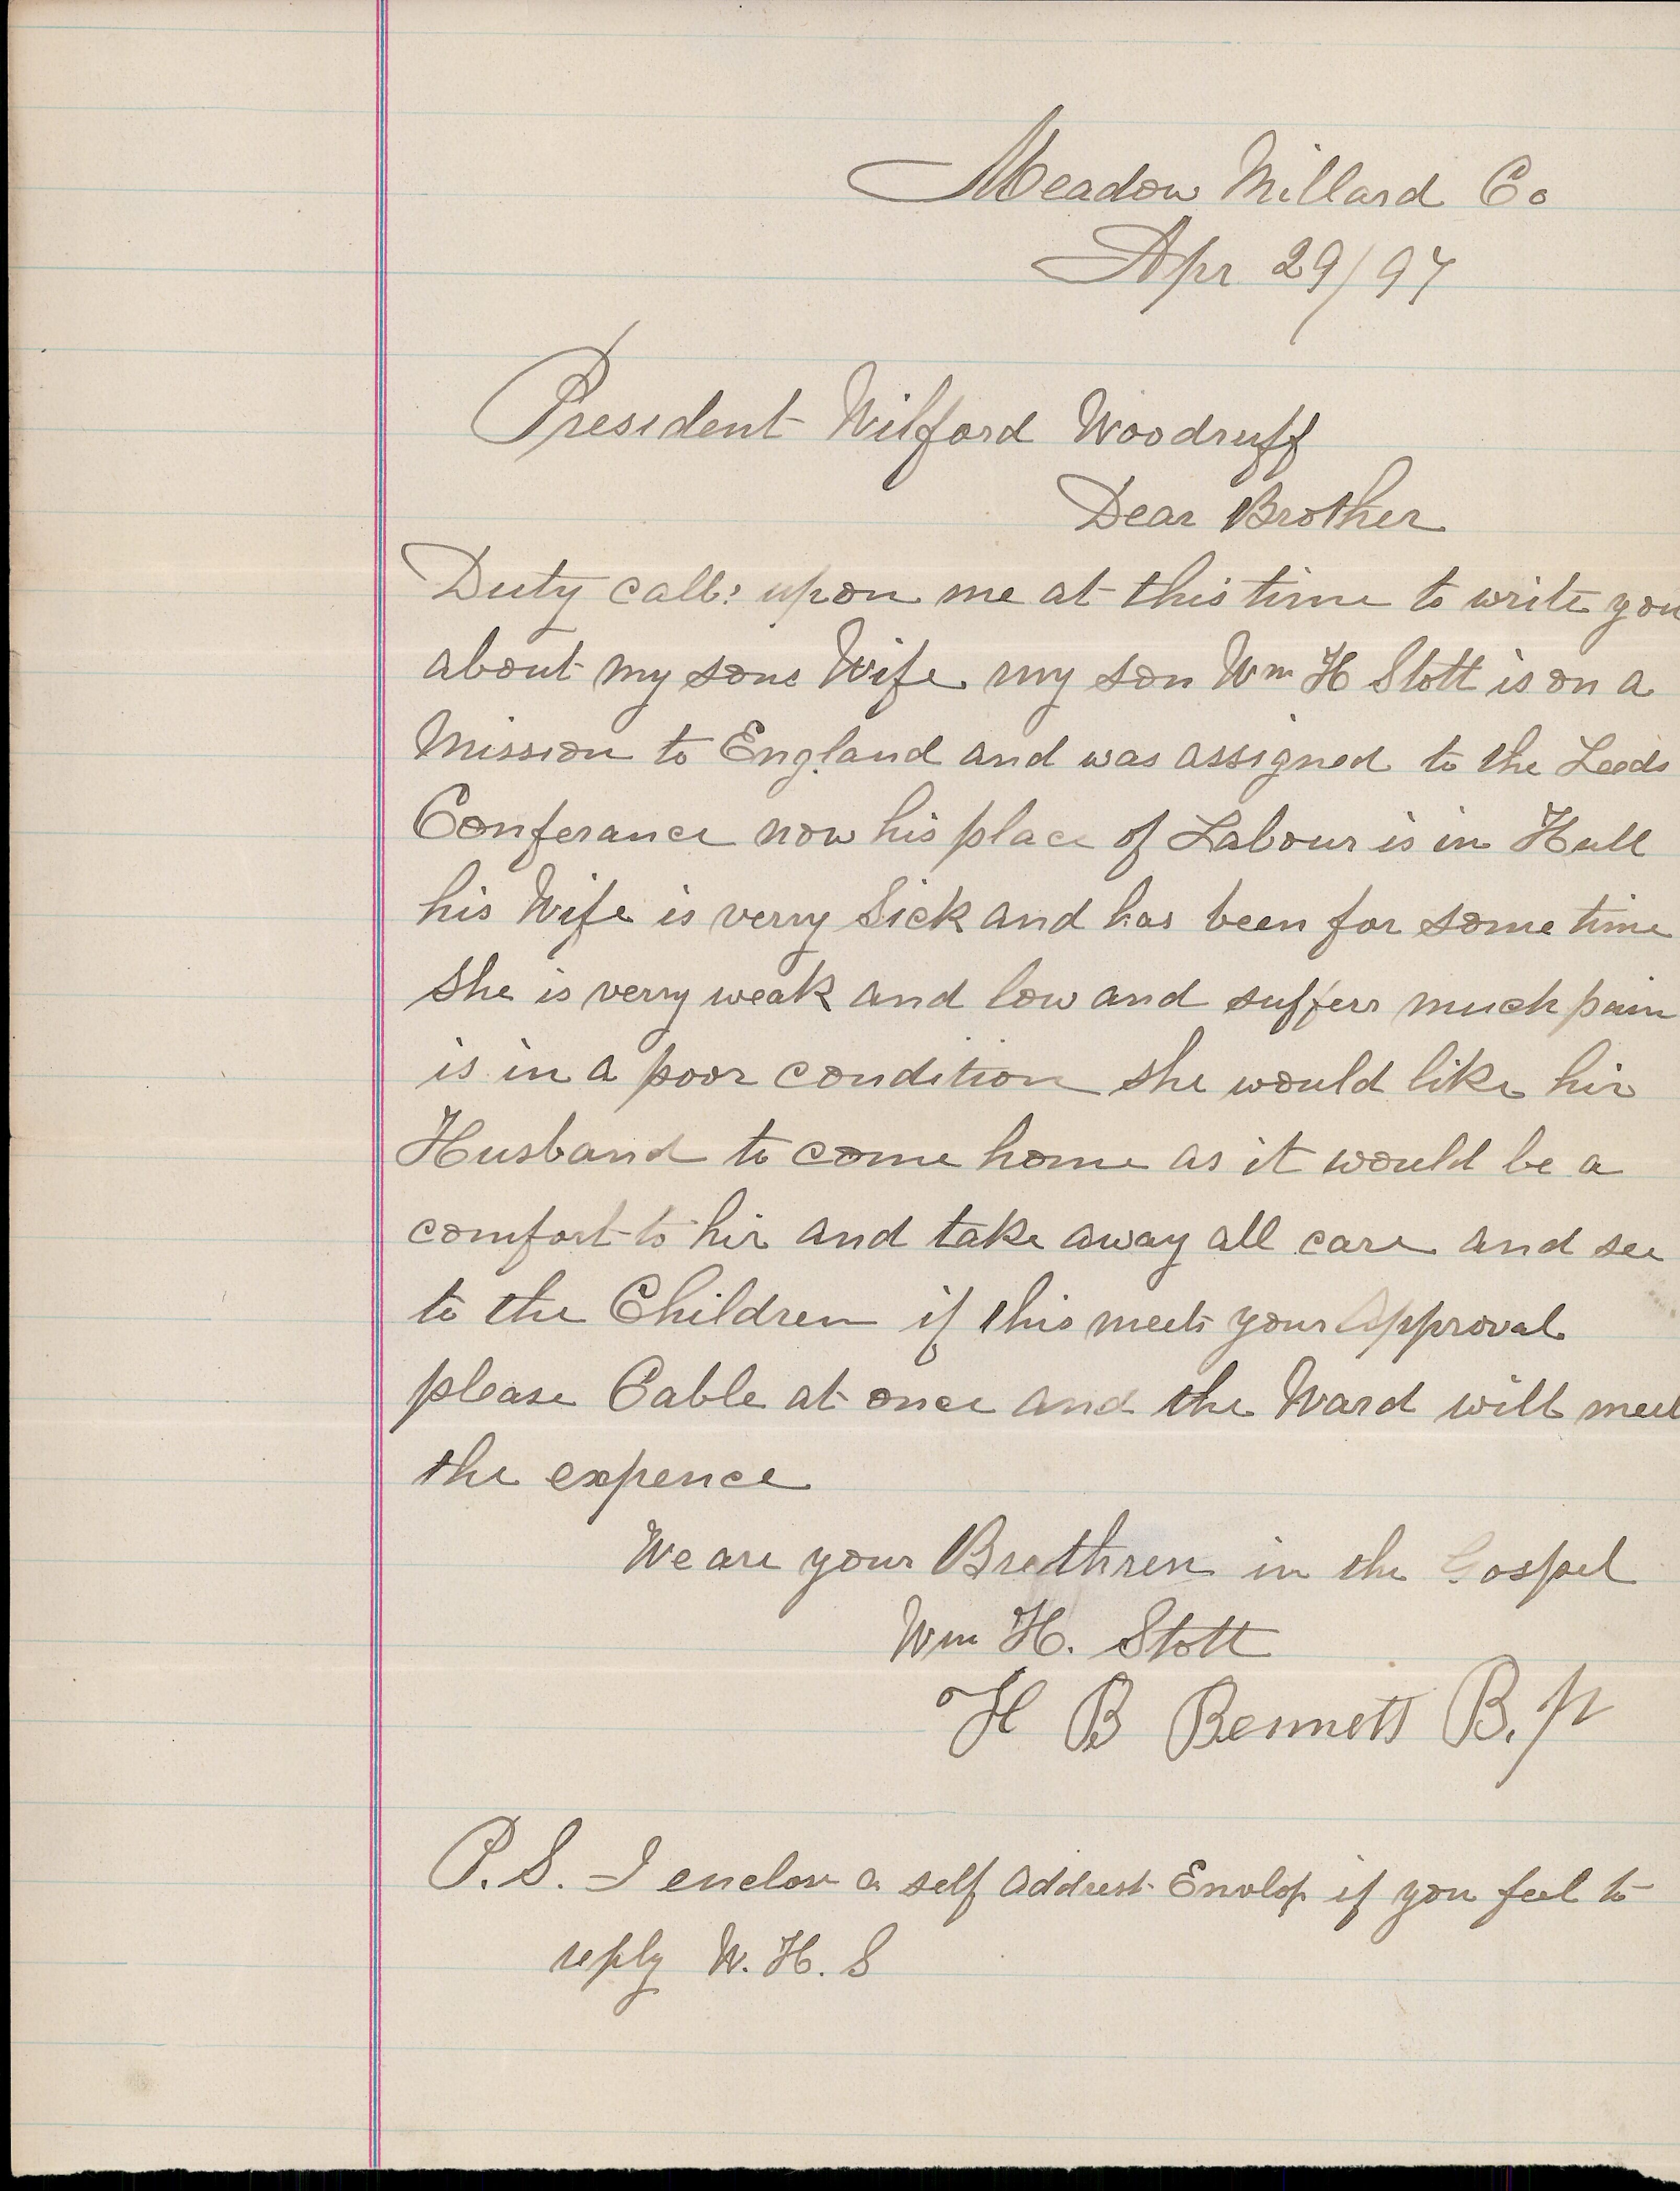 Meadow Millard Co
Apr 29/97
President Wilford Woodruff
Dear Brother
Duty calls upon me at this time to write you
about my sons Wife my son Wm H Stott is on a
Mission to England and was assigned to the Leeds
Conferance now his place of Labour is in Hull
his Wife is verry Sick and has been for some time
She is verry weak and low and suffers much pain
is in a poor condition she would like hir
Husband to come home as it would be a
comfort to hir and take away all care and see
to the Children if this meets your Approval
please Cable at once and the Ward will meet
the expence
We are your Brethren in the Gospel
Wm H. Stott
H B Bennett B.p
P.S. I enclose a self addrest Envelop if you feel to
reply W. H. S